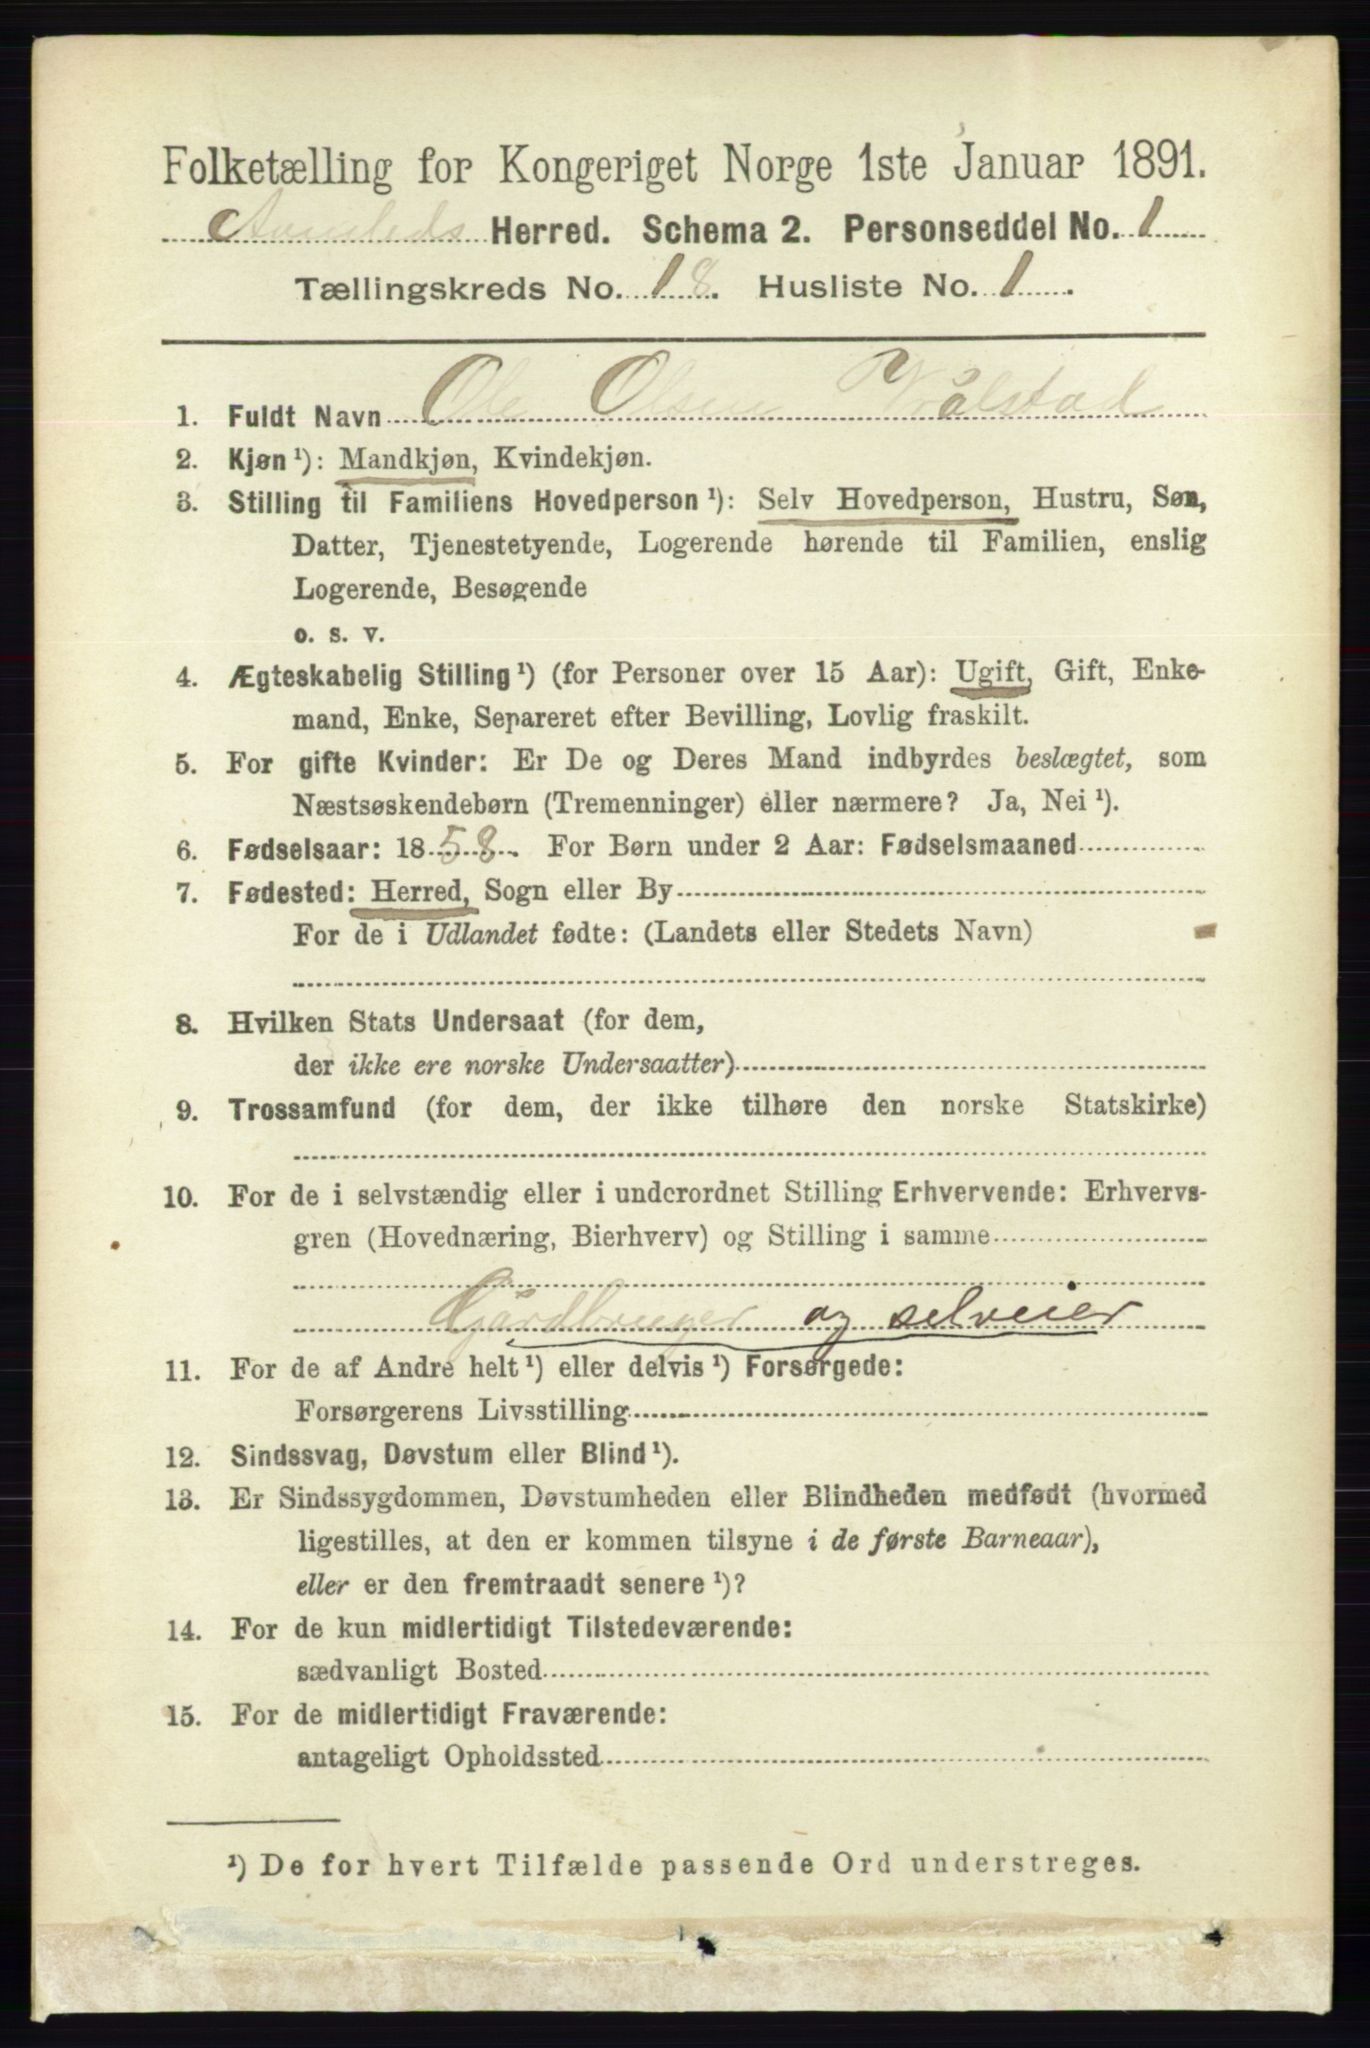 Folketælling for Kongeriget Norge 1ste Januar 1891.
Herred. Schema 2. Personseddel No. 1
Tællingskreds No. 18. Husliste No. 1.
1. Fuldt Navn Ole Olsen Vrålstad
2. Kjøn ¹): Mandkjøn, Kvindekjøn.
3. Stilling til Familiens Hovedperson ¹): Selv Hovedperson, Hustru, Søn,
Datter, Tjenestetyende, Logerende hørende til Familien, enslig
Logerende, Besøgende
o. s. v.
4. Ægteskabelig Stilling ¹) (for Personer over 15 Aar): Ugift, Gift, Enke-
mand, Enke, Separeret efter Bevilling, Lovlig fraskilt.
5. For gifte Kvinder: Er De og Deres Mand indbyrdes beslægtet, som
Næstsøskendebørn (Tremenninger) eller nærmere? Ja, Nei ¹).
6. Fødselsaar: 1858. For Børn under 2 Aar: Fødselsmaaned
7. Fødested: Herred, Sogn eller By
For de i Udlandet fødte: (Landets eller Stedets Navn)
8. Hvilken Stats Undersaat (for dem,
der ikke ere norske Undersaatter)
9. Trossamfund (for dem, der ikke tilhøre den norske Statskirke)
10. For de i selvstændig eller i underordnet Stilling Erhvervende: Erhvervs-
gren (Hovednæring, Bierhverv) og Stilling i samme
Gårdbruger og selveier
11. For de af Andre helt ¹) eller delvis ¹) Forsørgede:
Forsørgerens Livsstilling
12. Sindssvag, Døvstum eller Blind ¹).
13. Er Sindssygdommen, Døvstumheden eller Blindheden medfødt (hvormed
ligestilles, at den er kommen tilsyne i de første Barneaar),
eller er den fremtraadt senere ¹)?
14. For de kun midlertidigt Tilstedeværende:
sædvanligt Bosted
15. For de midlertidigt Fraværende:
antageligt Opholdssted
¹) De for hvert Tilfælde passende Ord understreges.